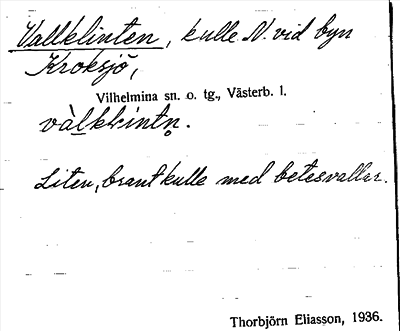 Vallklinten, kulle N. vid byn
Kroksjö,
Vilhelmina sn. o. tg., Västerb. l.
Liten, brant kulle med betesvallar.
Thorbjörn Eliasson, 1936.